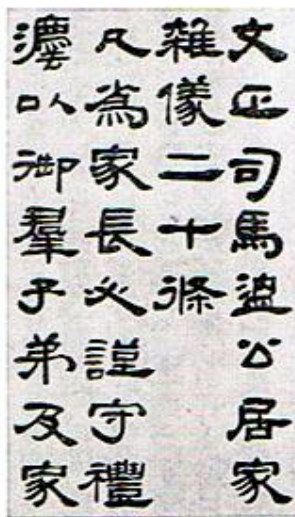 文正司馬溫公居家
雜儀二十條
凡爲家長必謹守禮
灋以御羣子弟及家